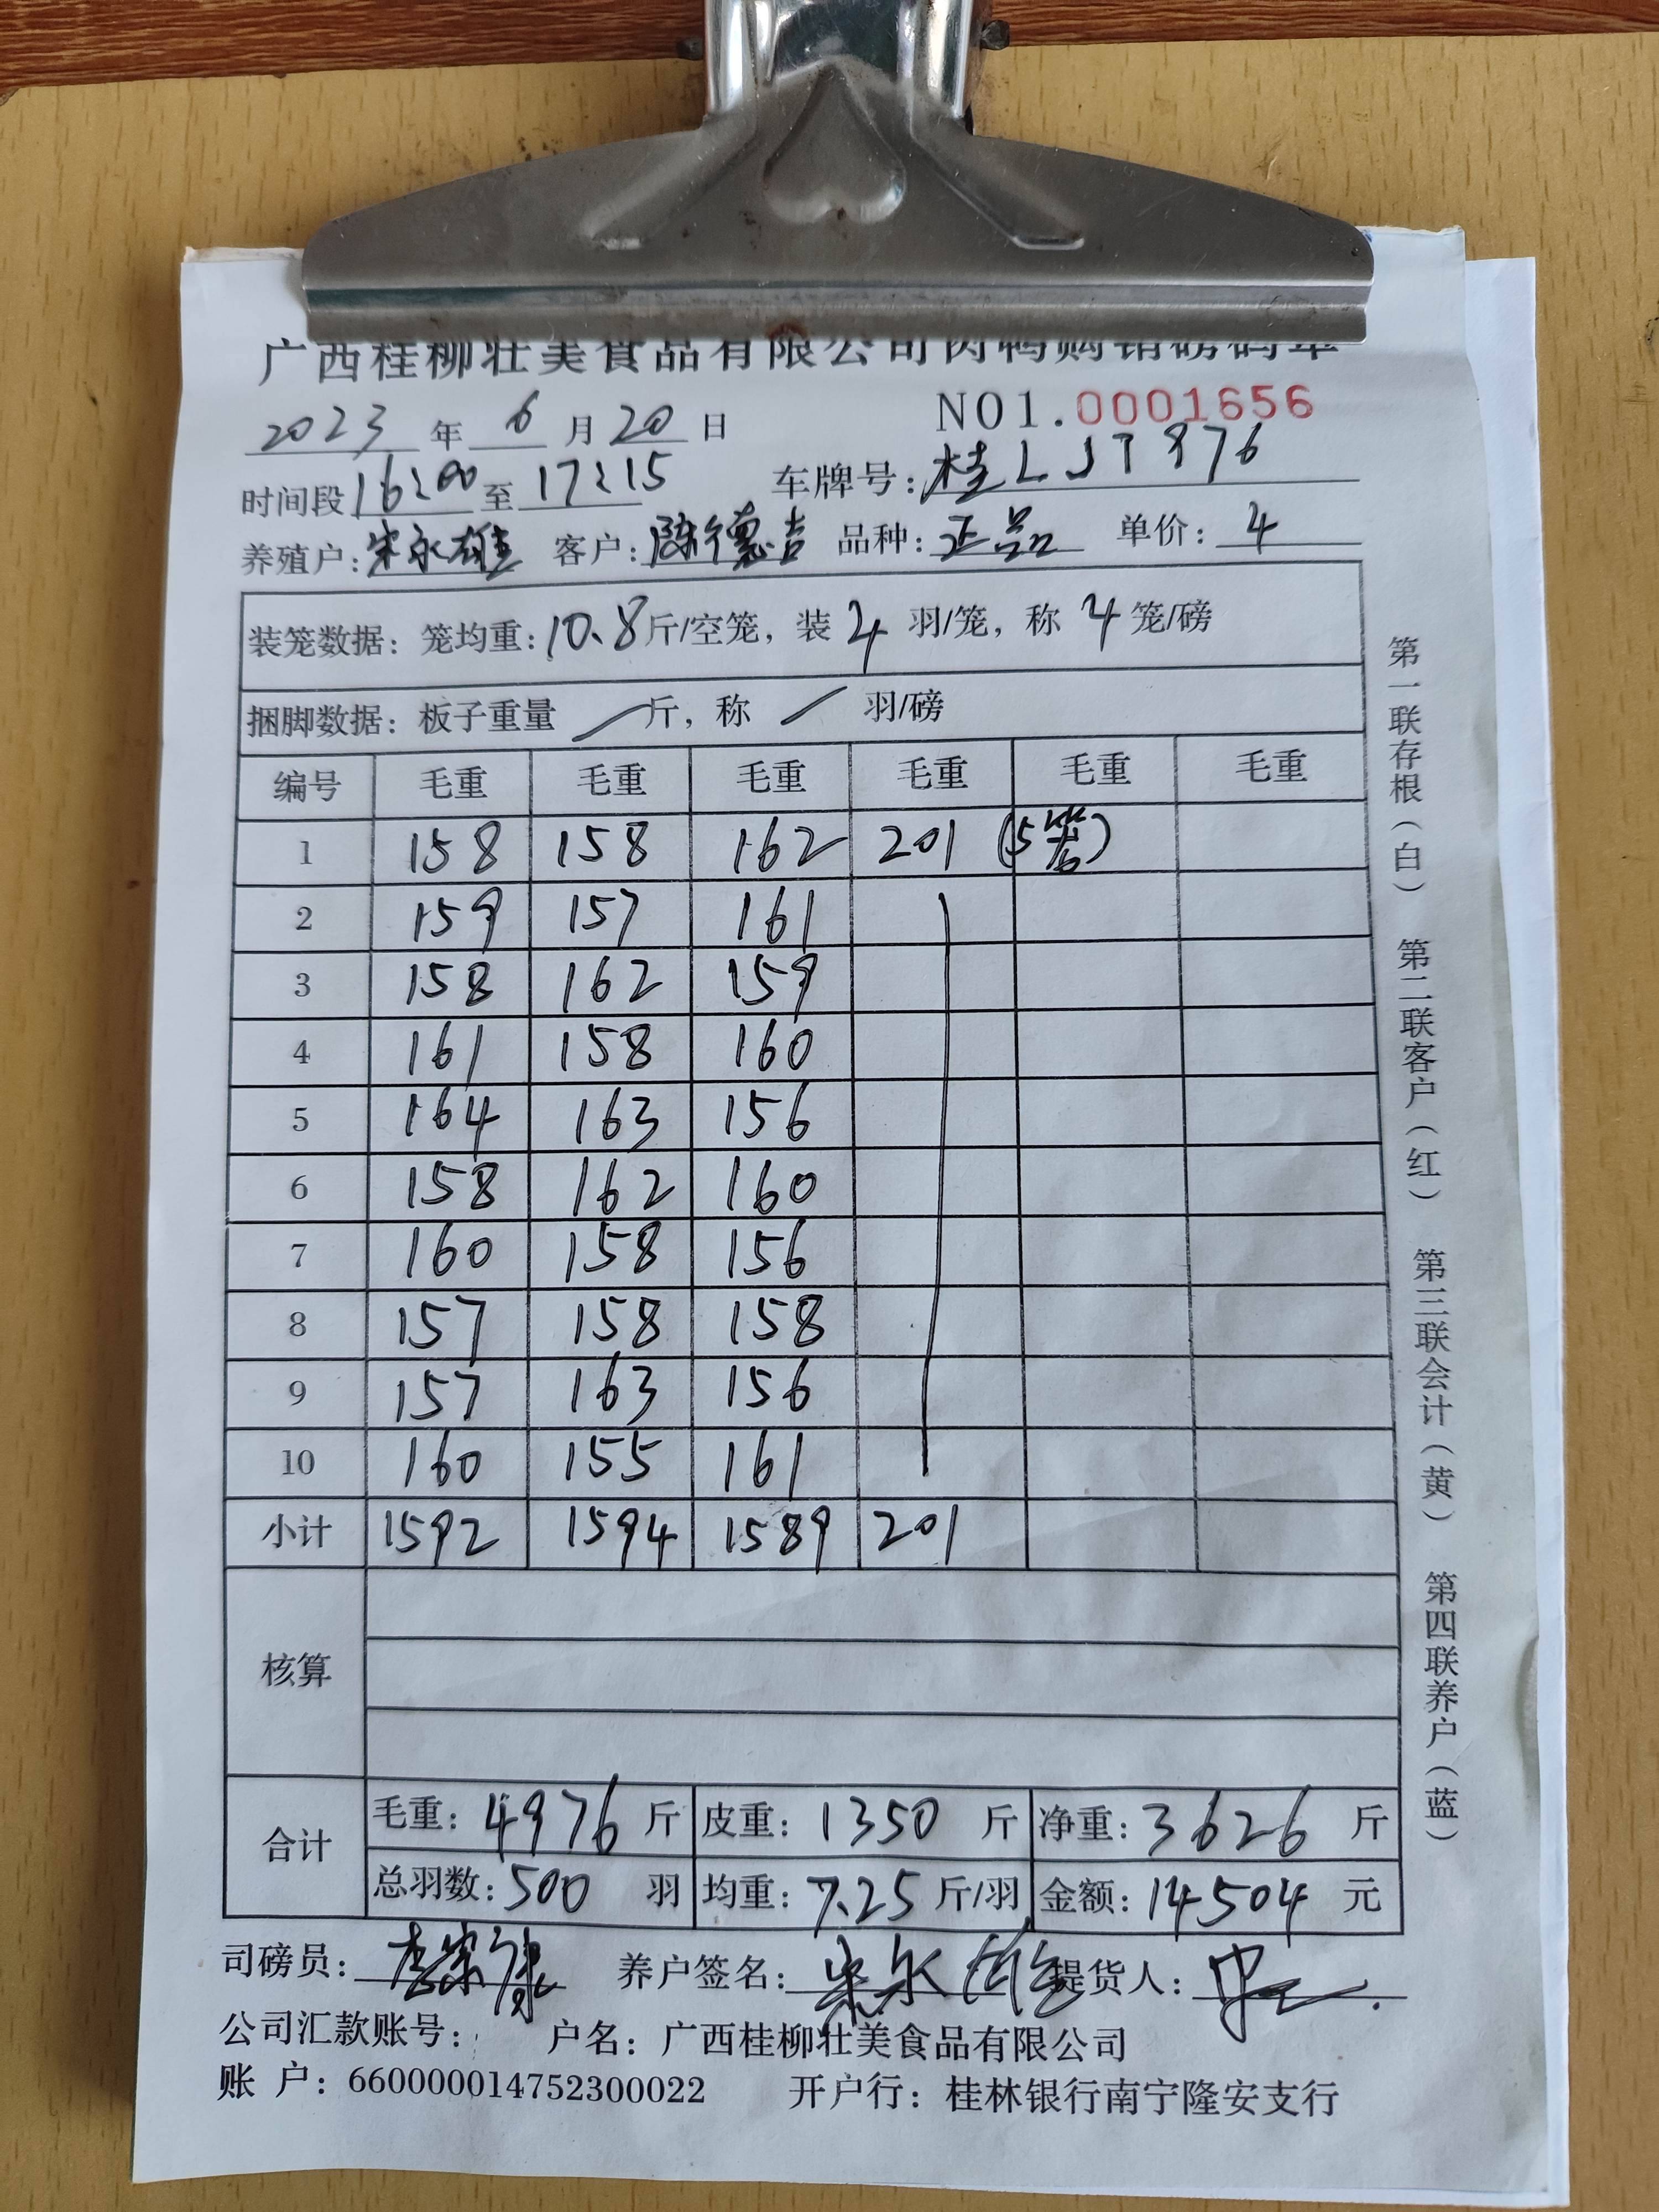 广西桂柳壮美食品有限公司肉鸭购销磅码单
2023 年 6 月 20 日 NO1.0001656
时间段 16:00 至 17:15 车牌号: 桂L JT876
养殖户: 朱永雄 客户: 陈德吉 品种: 正品 单价: 4
装笼数据: 笼均重: 10.8 斤/空笼, 装 4 羽/笼, 称 4 笼/磅
捆脚数据: 板子重量 / 斤, 称 / 羽/磅
编号 毛重 毛重 毛重 毛重 毛重 毛重
1 158 158 162 201 (5笼)
2 159 157 161
3 158 162 159
4 161 158 160
5 164 163 156
6 158 162 160
7 160 158 156
8 157 158 158
9 157 163 156
10 160 155 161
小计 1592 1594 1589 201
核算
合计 毛重: 4976 斤 皮重: 1350 斤 净重: 3626 斤
总羽数: 500 羽 均重: 7.25 斤/羽 金额: 14504 元
司磅员: 养户签名: 朱永雄 提货人:
公司汇款账号: 户名: 广西桂柳壮美食品有限公司
账 户: 660000014752300022 开户行: 桂林银行南宁隆安支行
第一联存根(白) 第二联客户(红) 第三联会计(黄) 第四联养户(蓝)